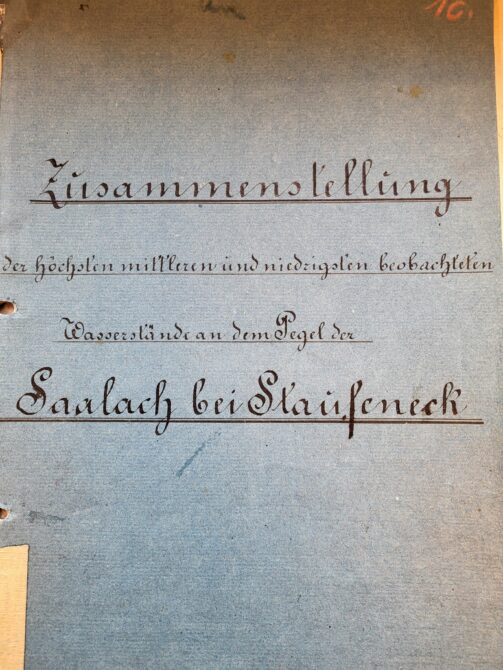 16.
Zusammenstellung
der höchsten mittleren und niedrigsten beobachteten
Wasserstände an dem Pegel der
Saalach bei Staufeneck